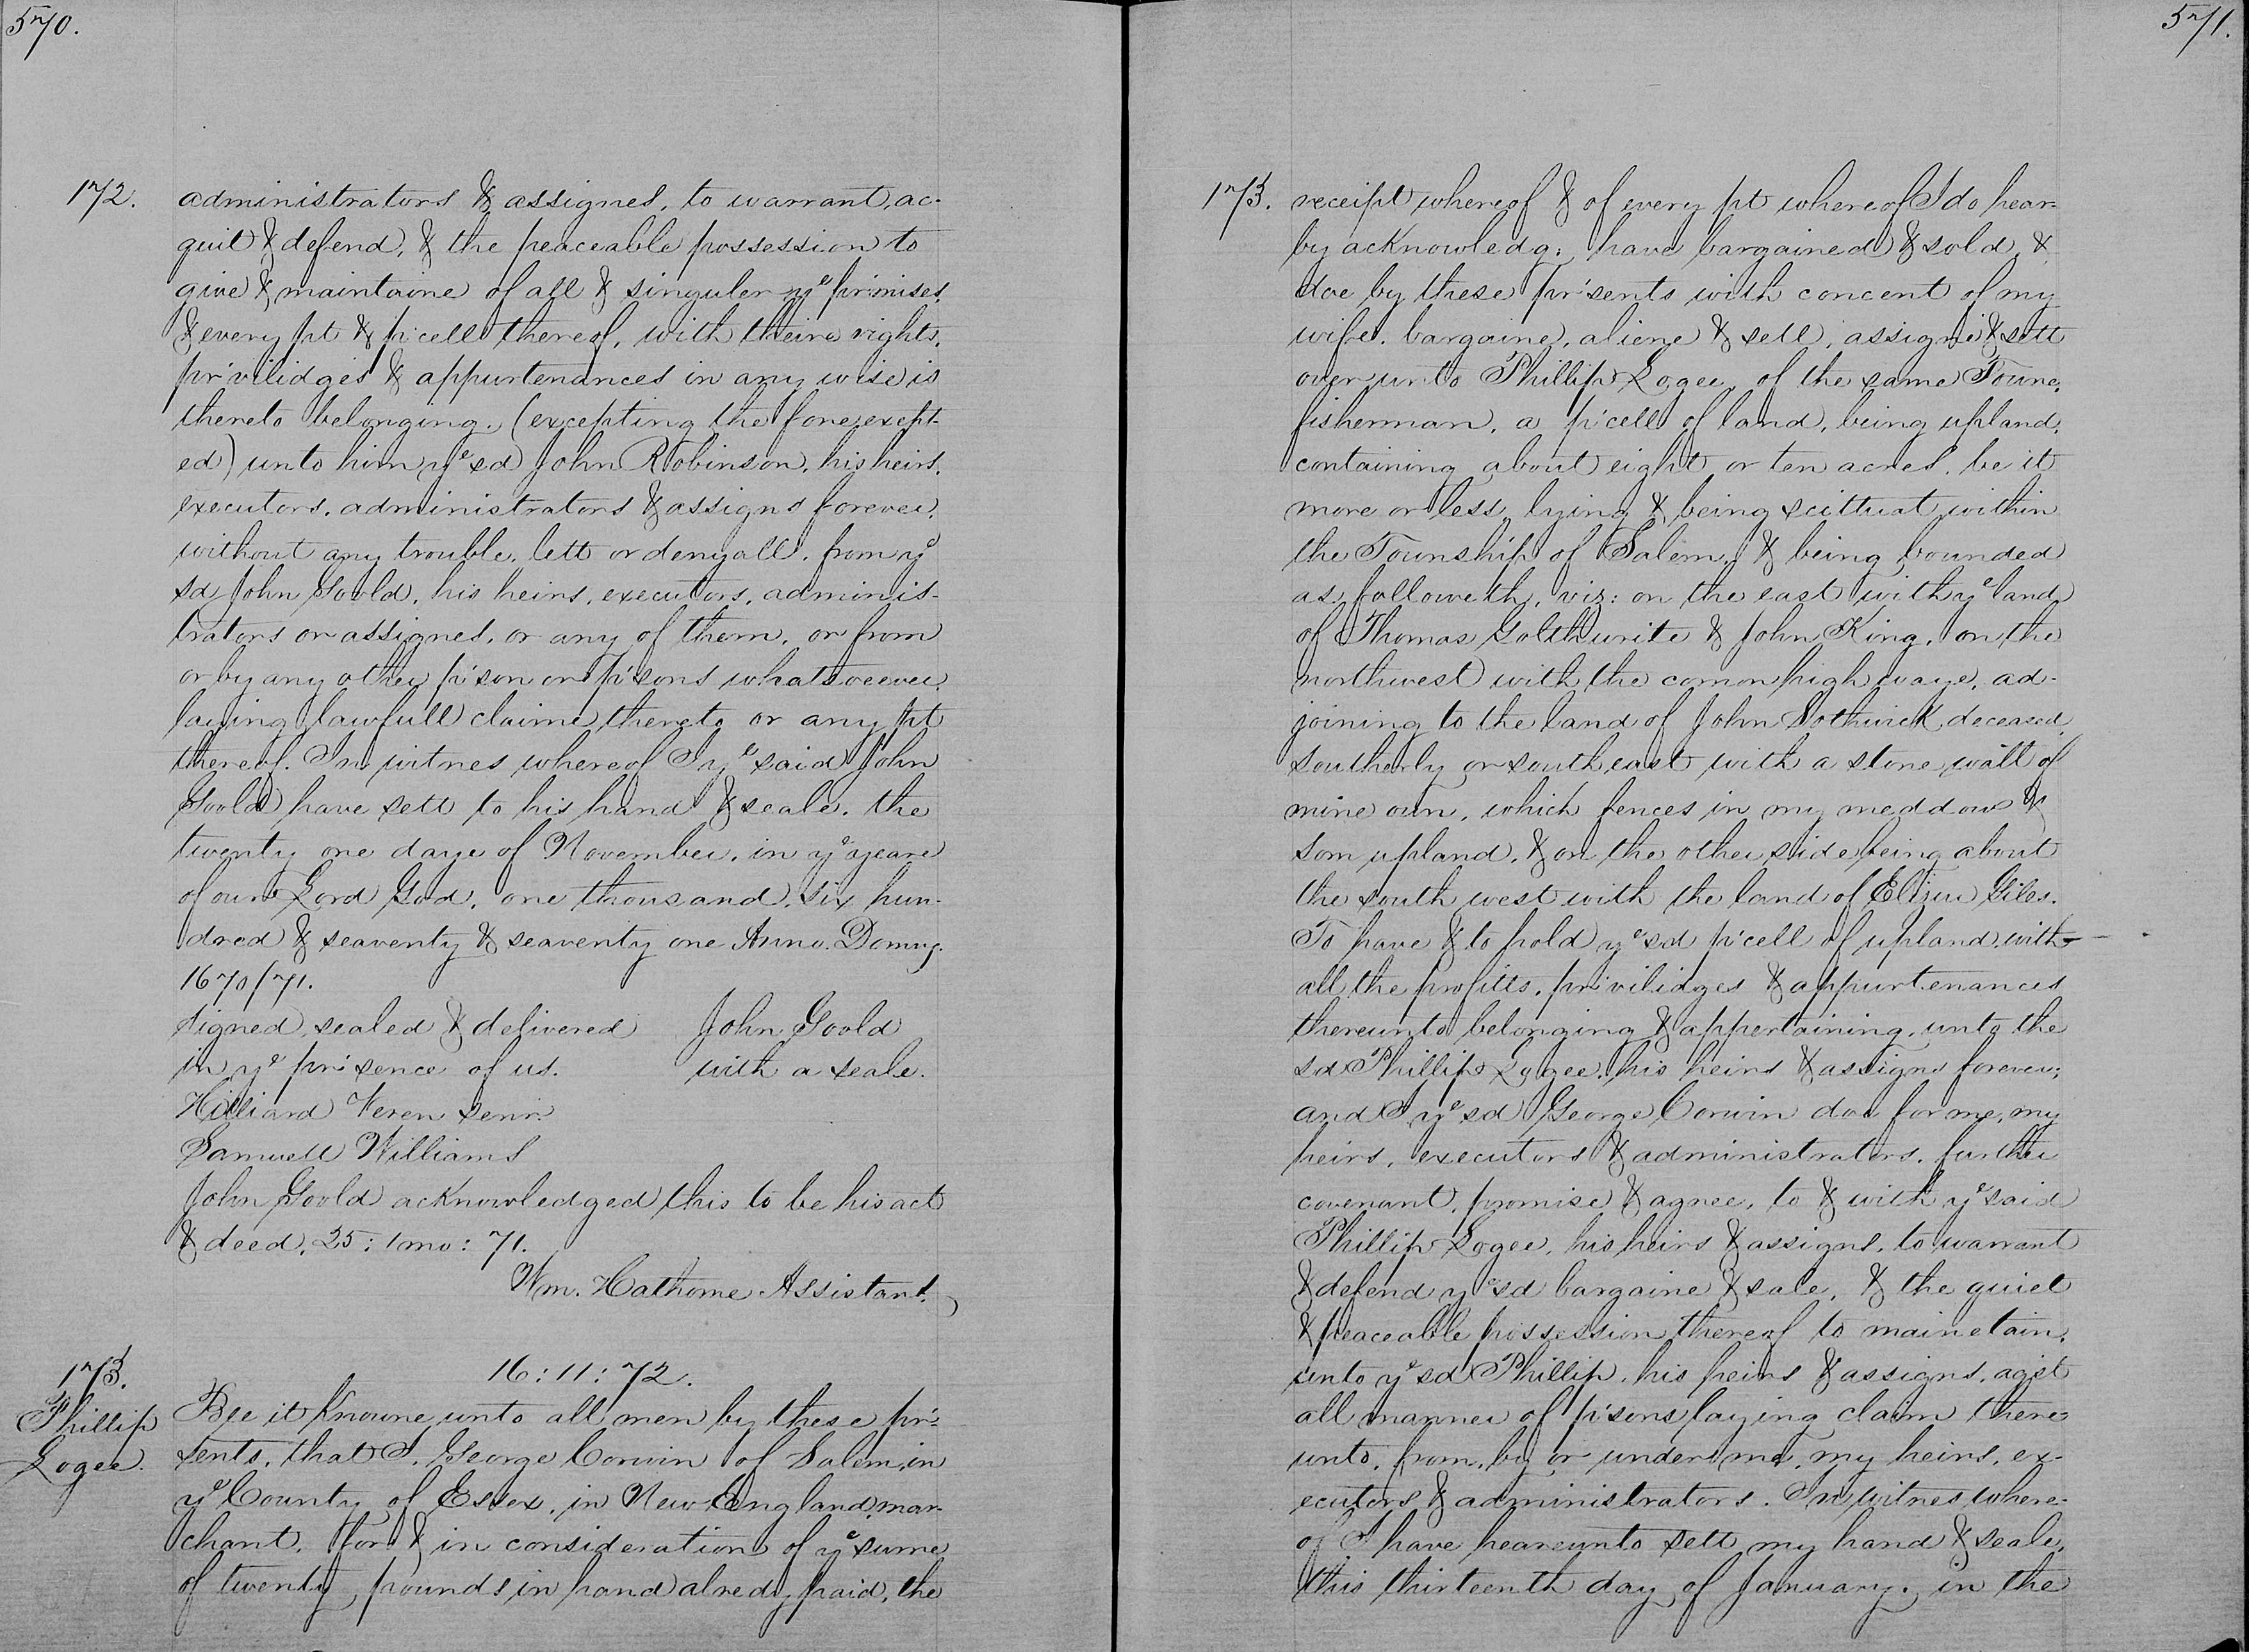 570.
172. administrators & assignes, to warrant, ac-
quit & defend, & the peaceable possession to
give & maintaine of all & singuler yᵉ pr'mises,
& every pt & p'cell thereof, with theire rights,
pr'vilidges & appurtenances in any wise is
thereto belonging. (excepting the fore except-
ed) unto him yᵉ sd John Robinson, his heirs,
executors, administrators & assigns forever,
without any trouble, lett or denyall, from yᵉ
sd John Goold, his heirs, executors, adminis-
trators or assignes, or any of them, or from
or by any other p'son or p'sons whatsoever,
laying lawfull claime thereto or any pt
thereof. In witnes whereof I yᵉ said John
Goold have sett to his hand & seale. the
twenty one daye of November, in yᵉ yeare
of our Lord God, one thousand, six hun-
dred & seaventy & seaventy one Anno. Domny.
1670/71.
signed, sealed & delivered John Goold
in yᵉ pr'sence of us. with a seale.
Hilliard Veren senir.
Samuell Williams
John Goold acknowledged this to be his act
& deed, 25: 1mo: 71.
Wm. Hathorne Assistant.
173. 16:11:72.
Phillip Logee. Bee it knowne unto all men by these pr'-
sents, that I, George Corwin of Salem, in
yᵉ County of Essex, in New England, mar-
chant, for & in consideration of yᵉ sume
of twenty pounds in hand alredy paid, the
571.
173. receipt whereof & of every pt whereof I do hear-
by acknowledg: have bargained & sold, &
doe by these pr'sents with concent of my
wife, bargaine, aliene & sell, assigne & sett
over unto Phillip Logee, of the same Towne,
fisherman, a p'cell of land, being upland,
containing about eight or ten acres, be it
more or less, lying & being scittuat within
the Township of Salem, & being bounded
as followeth, viz: on the east with yᵉ land
of Thomas Golthwrite & John King, on the
northwest with the comon high waye, ad-
joining to the land of John Sothwick, deceased,
southerly or southeast with a stone wall of
mine own, which fences in my meddow &
som upland, & on the other side being about
the south west with the land of Elizur Giles.
To have & to hold yᵉ sd p'cell of upland, with
all the profitts, pr'vilidges & appurtenances
thereunto belonging & appertaining, unto the
sd Phillip Logee, his heirs & assigns forever;
and I yᵉ sd George Corwin doe for me, my
heirs, executors & administrators, further
covenant, promise & agree, to & with yᵉ said
Phillip Logee, his heirs & assigns, to warrant
& defend yᵉ sd bargaine & sale, & the quiet
& peaceable possession thereof to mainetain,
unto yᵉ sd Phillip, his heirs & assigns, agst
all manner of p'sons laying claim there-
unto, from, by or under me, my heirs, ex-
ecutors & administrators. In witnes where-
of I have heareunto sett my hand & seale,
this thirteenth day of January, in the